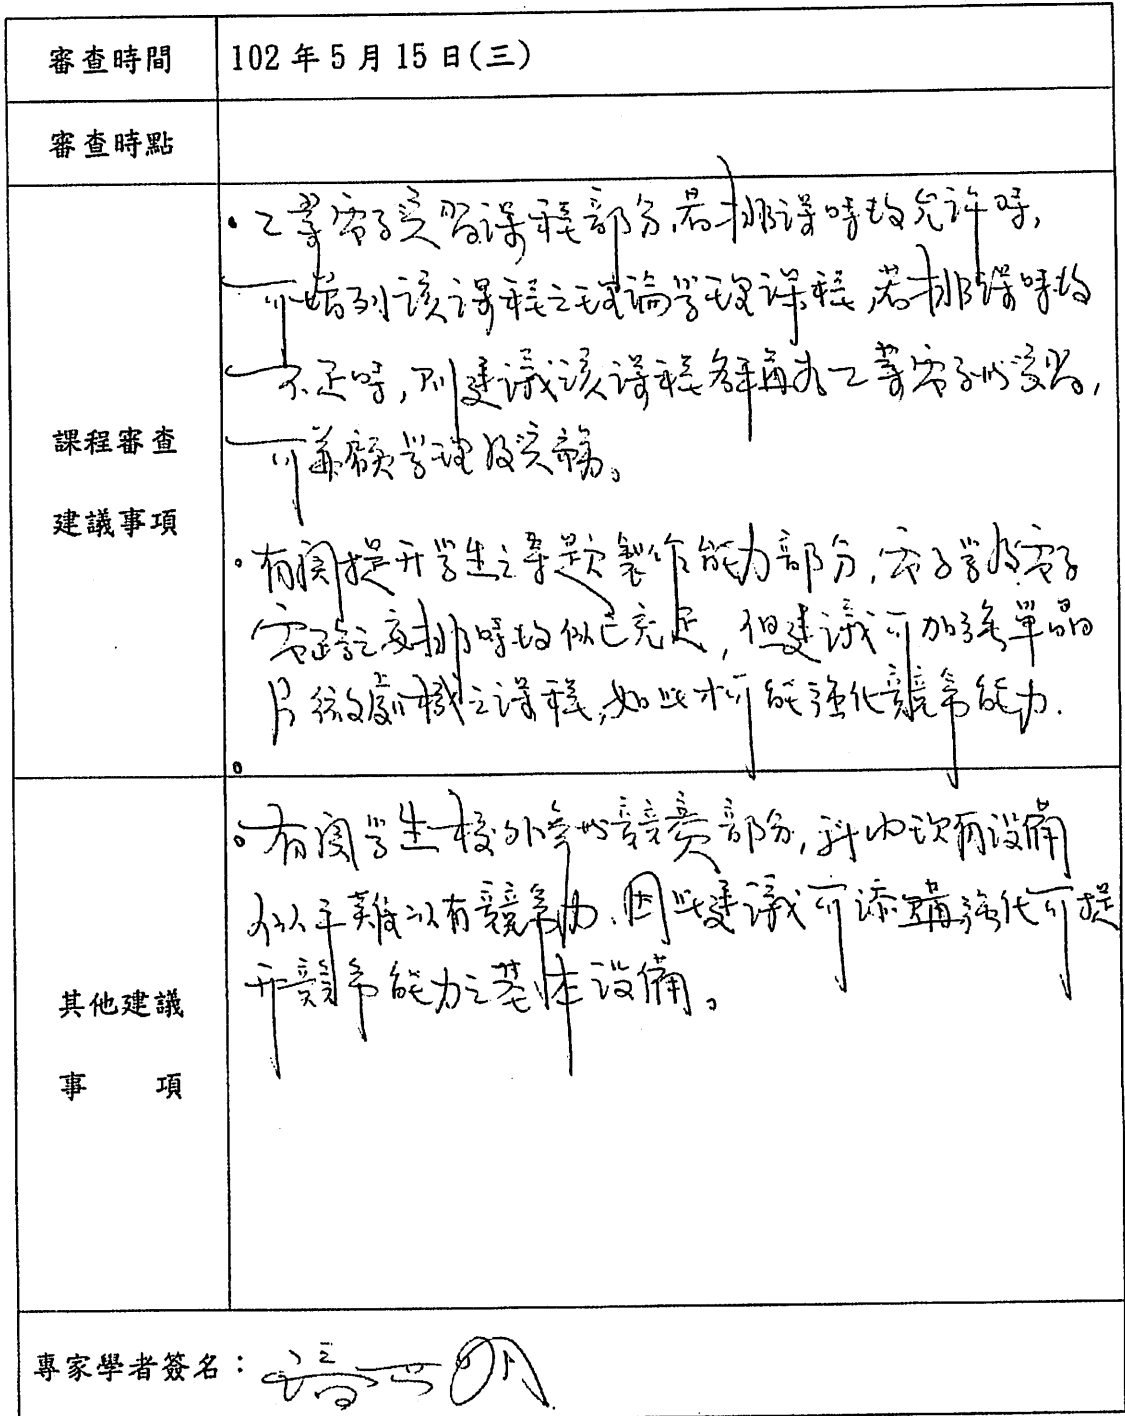 審查時間
102 年 5 月 15 日(三)
審查時點
課程審查
建議事項
• 工業電子實習課程部分,若排課時數允許時,
可增列該課程之理論學理課程,若排課時數
不足時,則建議該課程名稱為工業電子與實習,
可兼顧學理及實務。
• 有関提升學生之專題製作能力部分,電子學及電子
電路之安排時數似已充足,但建議可加強單晶
片微處理機之課程,如此才可能強化競爭能力.
其他建議
事 項
• 有関學生校外參與競賽部分,科內現有設備
似乎難以有競爭力.因此建議可添購強化可提
升競爭能力之基本設備。
專家學者簽名: